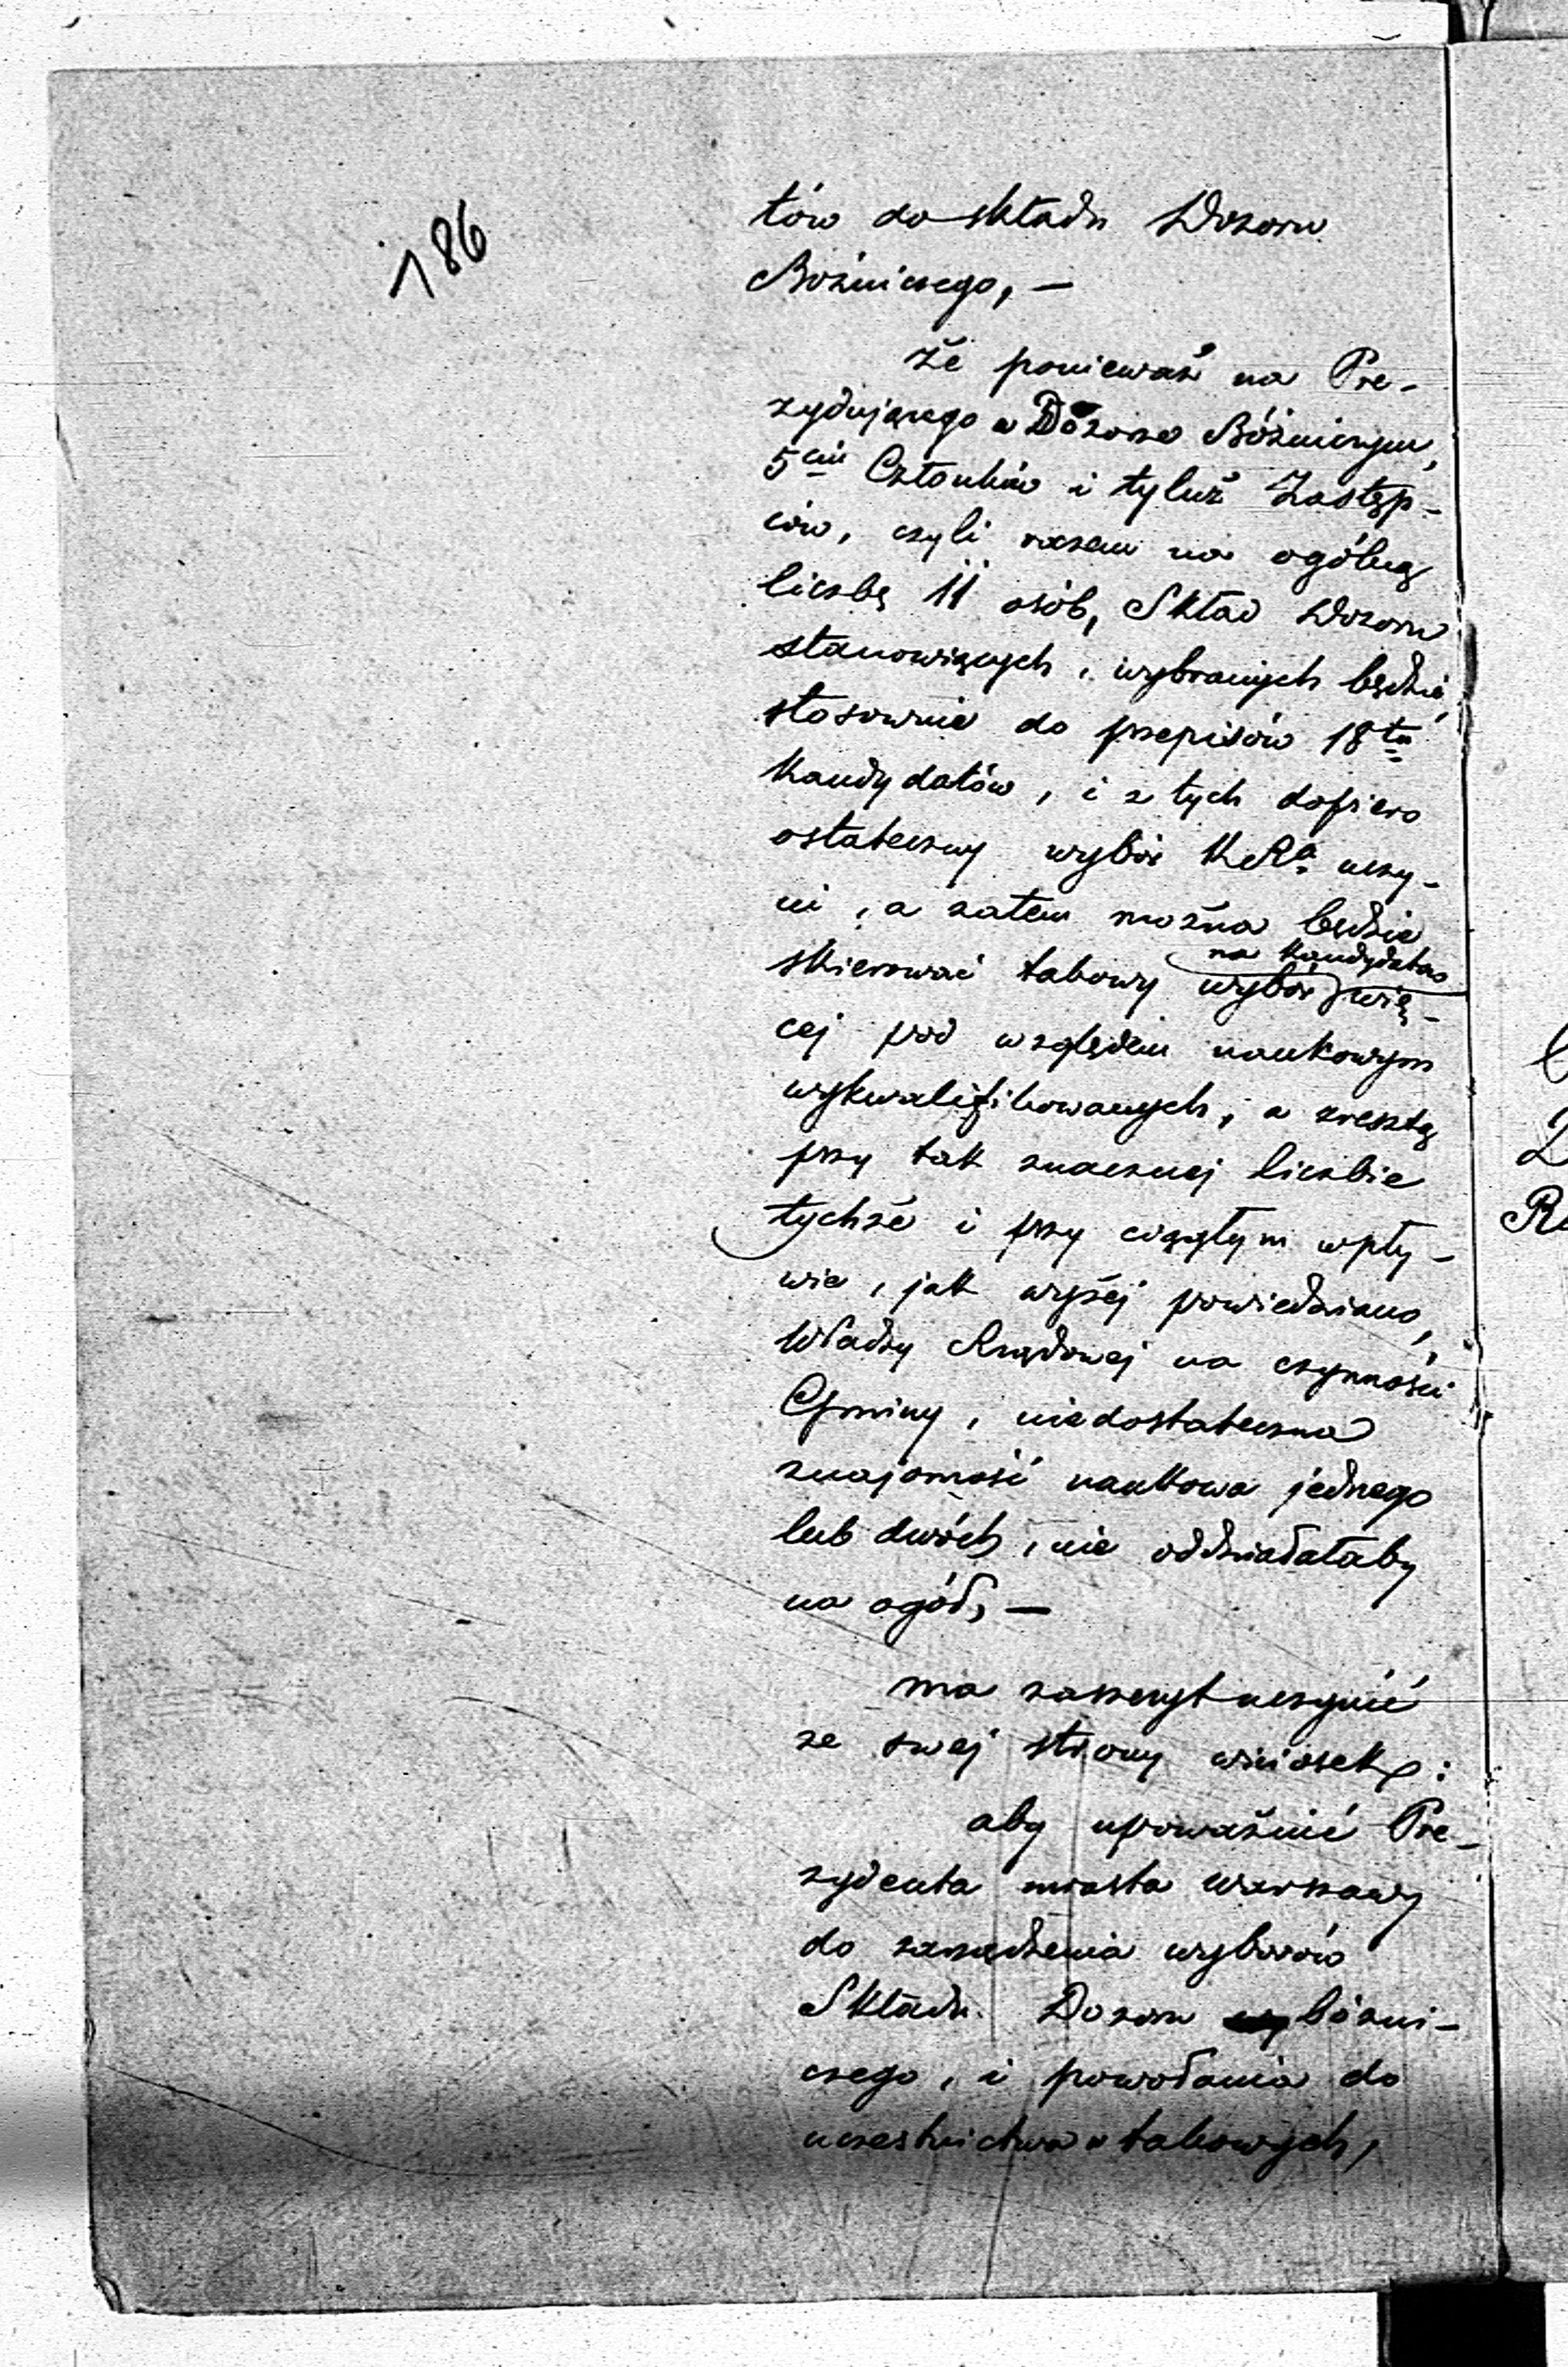 186
tów do składu Dozoru
Bóźniczego, —
że ponieważ na Pre-
zydującego w Dozorze Bóżniczym,
5ciu Członków i tyluż Zastęp-
ców, czyli razem na ogólną
liczbę 11 osób, Skład Dozoru
stanowiących, wybranych będzie,
stosownie do przepisów 18tu
Kandydatów, i z tych dopiero
ostateczny wybór K.Ra. uczy-
ni, a zatem można będzie
na Kandydatów
skierować takowy wybór wię-
cej pod względem naukowym
wykwalifikowanych, a zresztą
przy tak znacznej liczbie
tychże i przy ciągłym wpły-
wie, jak wyżej powiedziano,
Władzy Rządowej na czynności
Gminy, niedostateczna
znajomość naukowa jednego
lub dwóch, nie oddziałałaby
na ogół, —
ma zaszczyt uczynić
ze swej strony wniosek:
aby upoważnić Pre-
zydenta miasta Warszawy
do zarządzenia wyborów
Składu Dozoru bóżni-
czego, i powołania do
uczestnictwa w takowych,
R